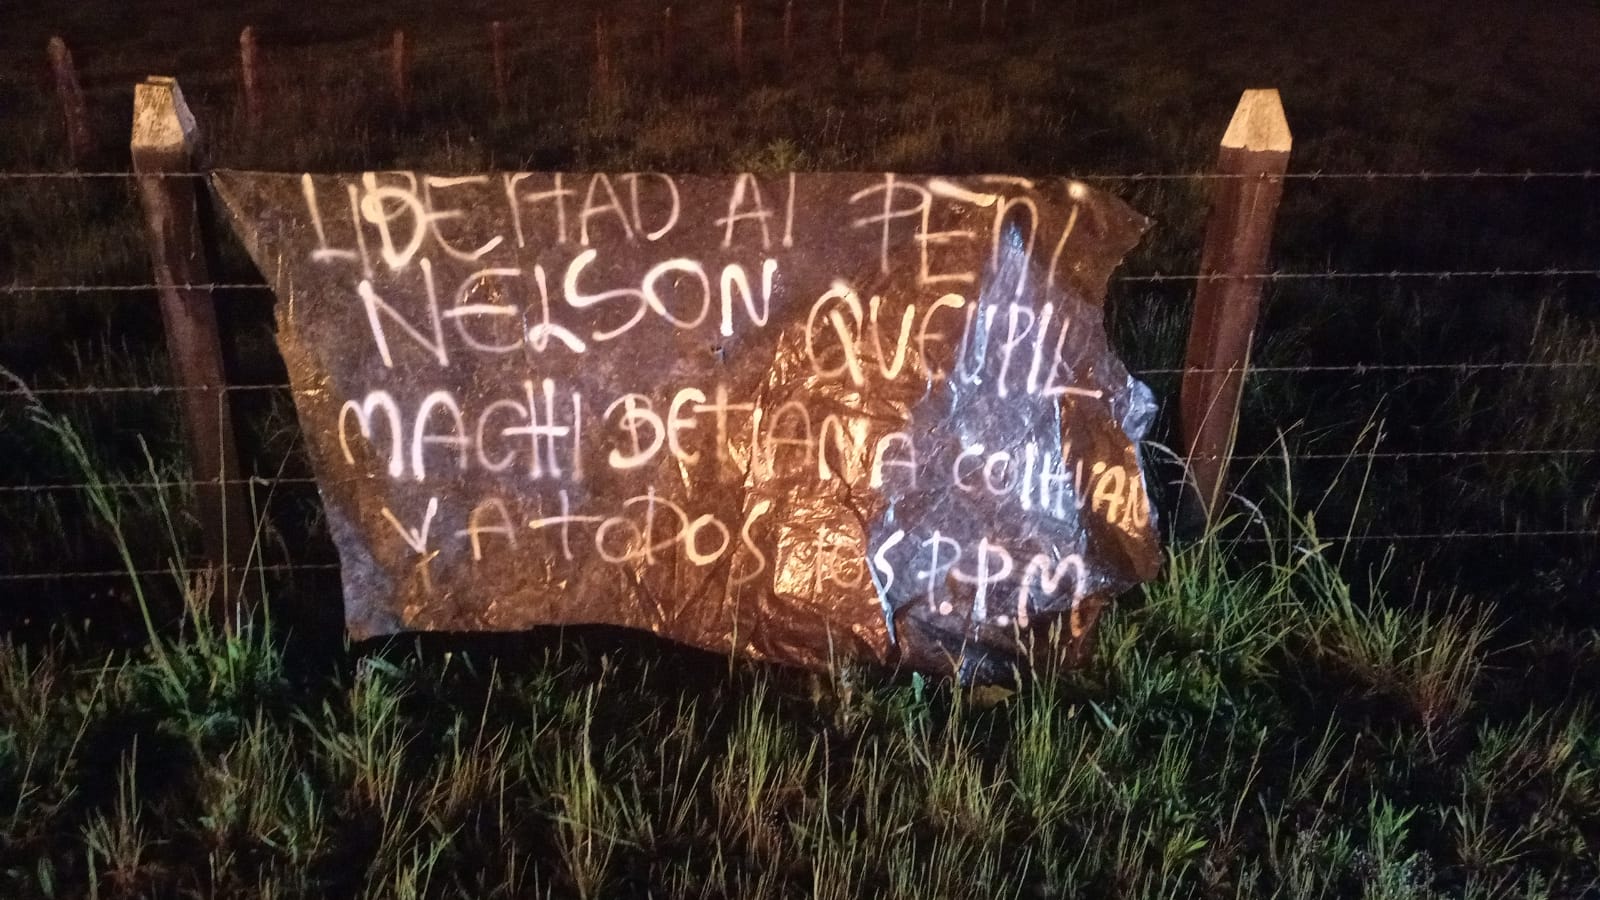 LIBERTAD AL PEÑI
NELSON QUEUPIL
MACHI BETIANA COIHUAN
Y A TODOS LOS P.P.M